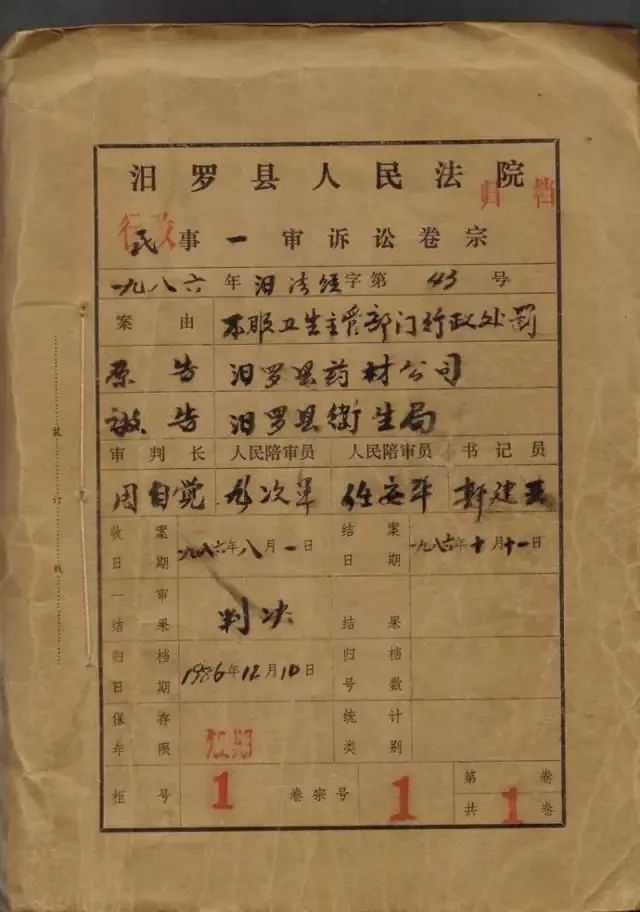 汨罗县人民法院
归档
行政
民事一审诉讼卷宗
一九八六年汨法经字第43号
案由 不服卫生主管部门行政处罚
原告 汨罗县药材公司
被告 汨罗县衛生局
审判长 人民陪审员 人民陪审员 书记员
周自觉 次军 任安平 建
收案日期 一九八六年八月一日 结案日期 一九八六年十月十一日
一审结果 判决 结果
归档日期 1986年12月10日 归档号数
保存年限 统计类别
柜号 1 卷宗号 1 第 卷
共 1 卷
装订线